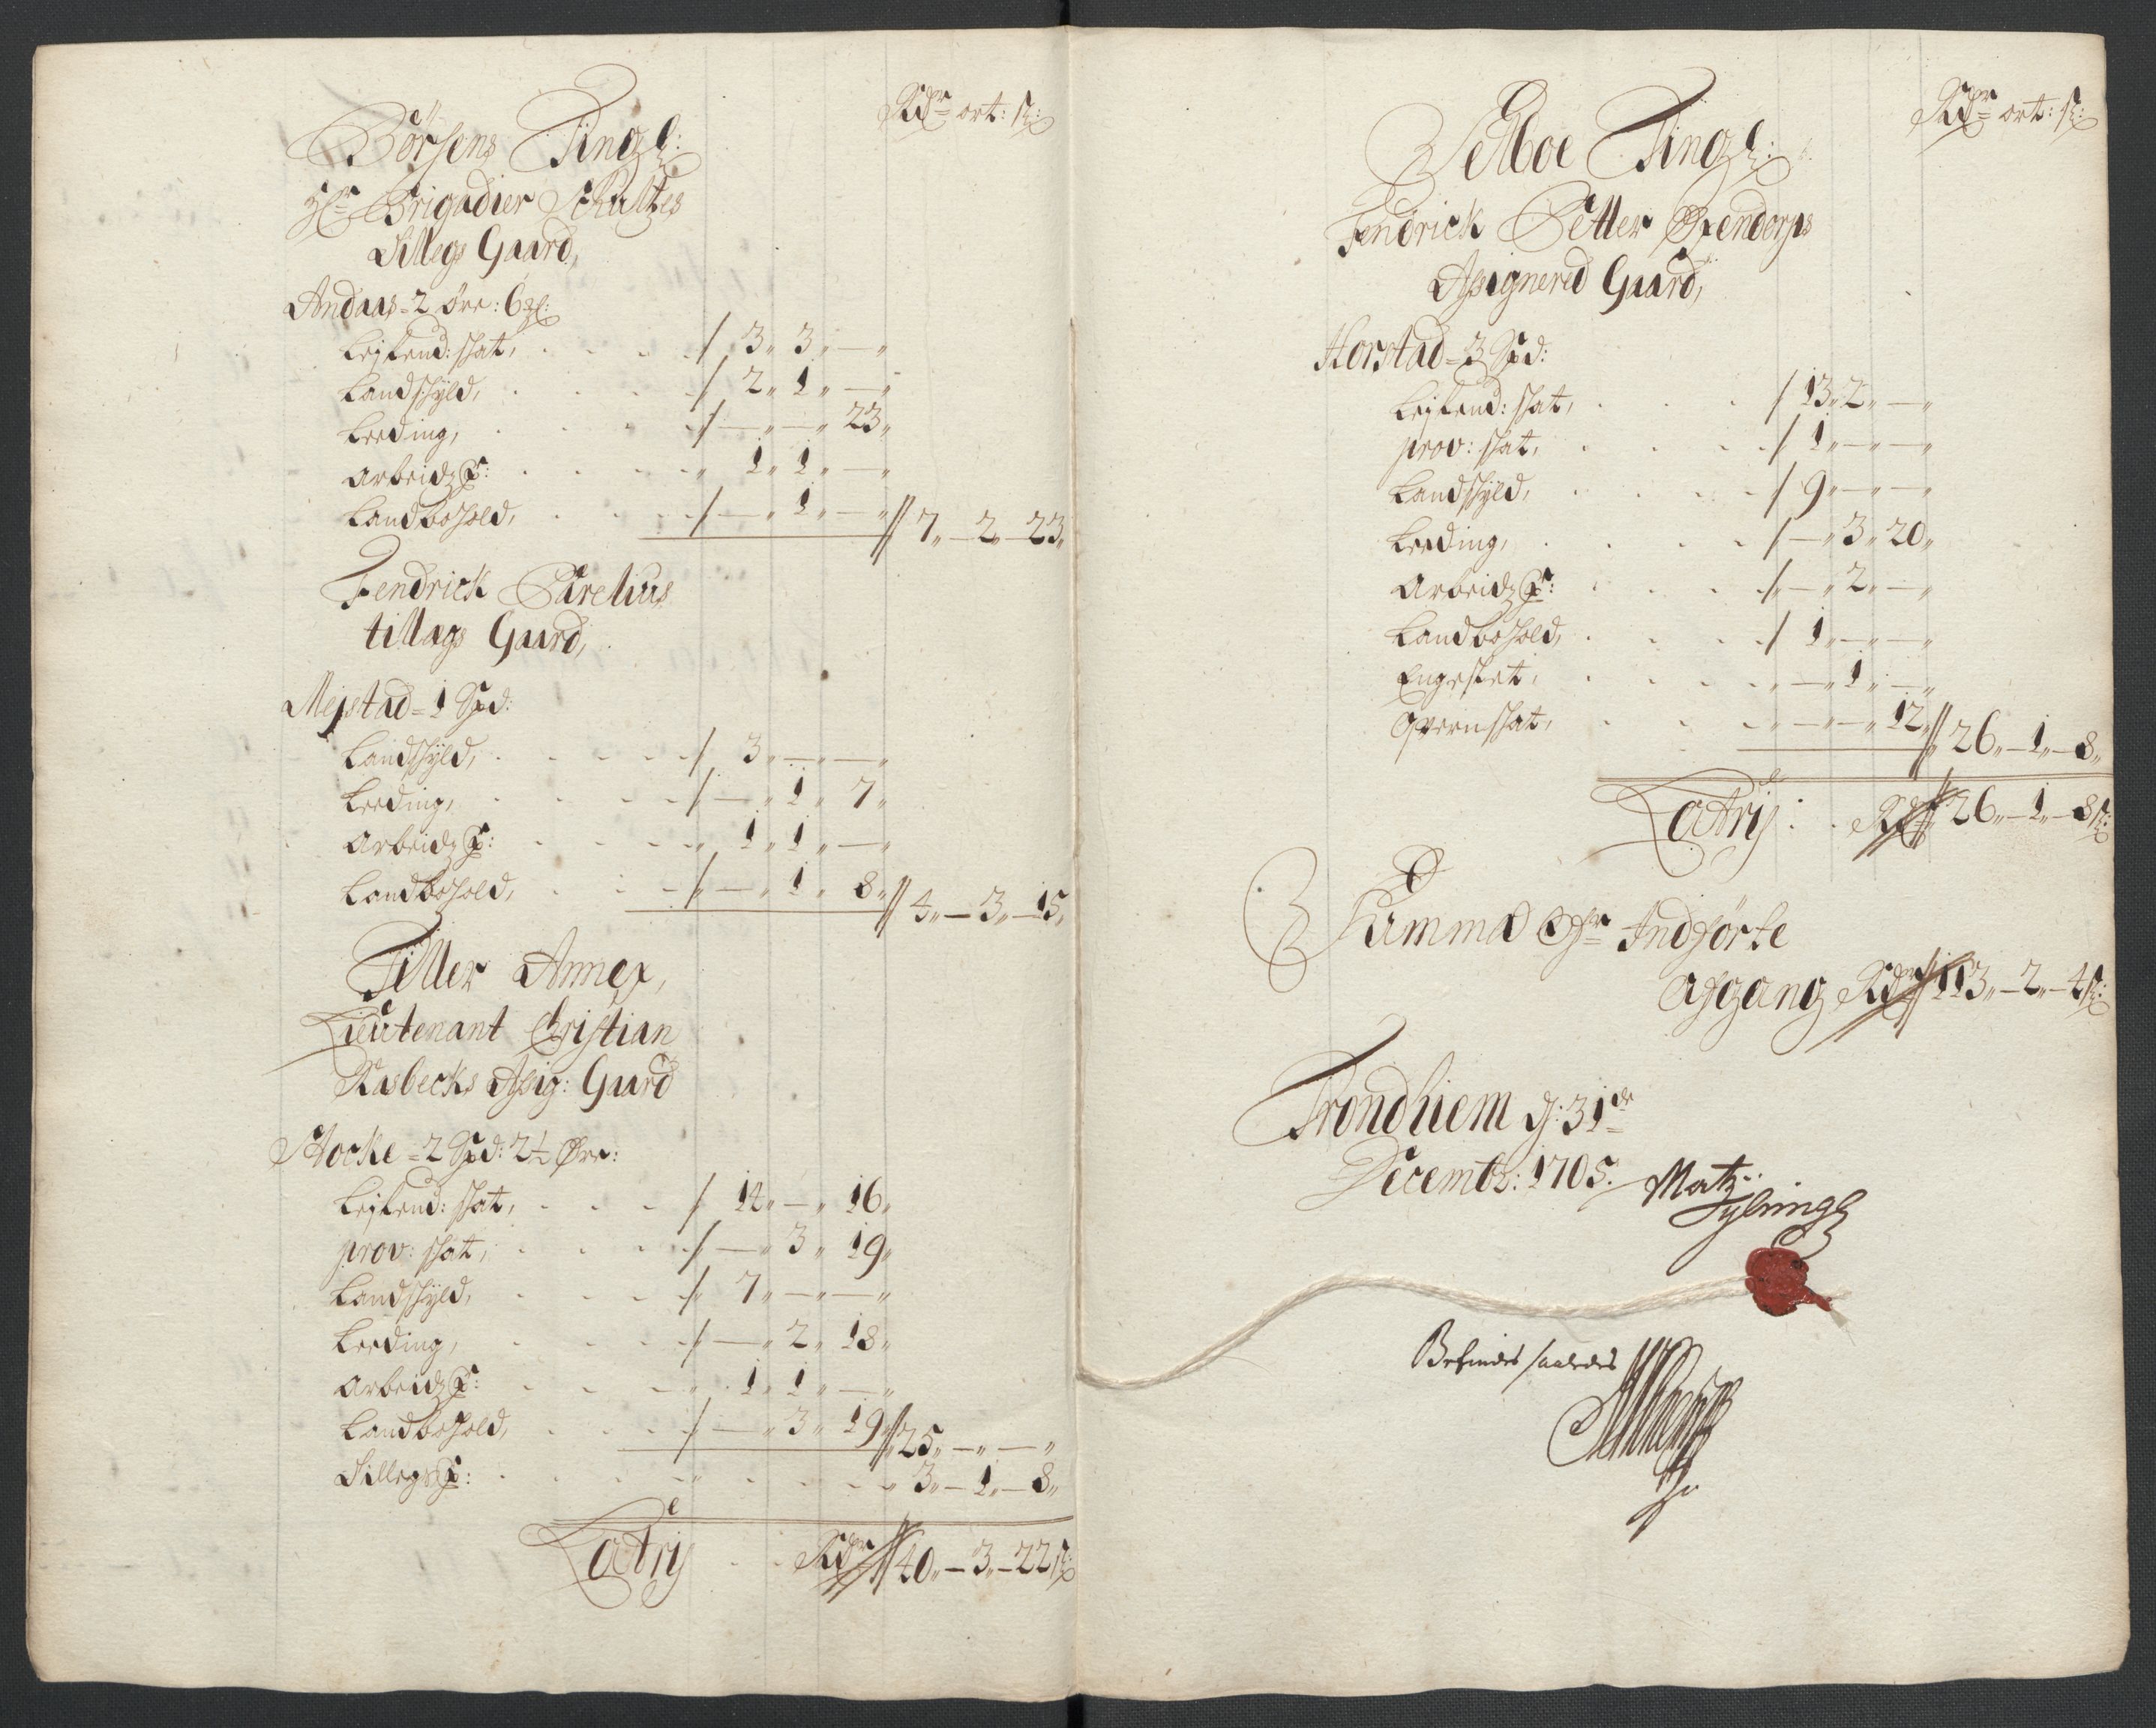 Rdr ort: ß:
Børsens Tingl:
Hr Brigadier Schultzes
Tillegs Gaard,
Andaas - 2 øre: 6 gl:
Lejlend: skat, 3 „ 3 „ — „
Landskyld, 2 „ 1 „ — „
Leeding, — „ — „ 23 „
Arbeidz P: 1 „ 1 „ — „
Landbohold, — „ 1 „ — „ 7 „ — 2 „ — 23 „
Fendrick Parelius
tillags Gaard,
Mejstad - 1 Spd:
Landskyld, 3 „ — „ — „
Leeding, — „ 1 „ 7 „
Arbeidz P: 1 „ 1 „ — „
Landbohold, — „ 1 „ 8 „ 4 „ — 3 „ — 15 „
Tiller Annex,
Lieutenant Cristian
Rasbecks Assig: Gaard
Stocke - 2 Spd: 2½ Øre:
Lejlend: skat, 12 „ — „ 16 „
prov: skat, — „ 3 „ 19 „
Landskyld, 7 „ — „ — „
Leeding, — „ 2 „ 18 „
Arbeidz P: 1 „ 1 „ — „
Landbohold, — „ 3 „ 19 „ 25 „ — „ — „
Tillegs P: 3 „ — 1 „ — 8 „
Latrij Rdr 40 „ — 3 „ — 22 ß:
Rdr ort: ß:
Selboe Tingl:
Fendrick Petter Oxendorps
Assignered Gaard,
Horstad - 3 Spd:
Lejlend: skat, 13 „ 2 „ — „
prov: skat, 1 „ — „ — „
Landskyld, 9 „ — „ — „
Leeding, — „ 3 „ 20 „
Arbeidz P: — „ 2 „ — „
Landbohold, 1 „ — „ — „
Engeslet, — „ 1 „ — „
Qvernskat, — „ — „ 12 „ 26 „ — 1 „ — 8 „
Latrij: Rdr 26 „ — 1 „ — 8 ß:
Summa Indførte
Afgang Rdr 113 „ — 2 „ — 4 ß:
Trondhiem d: 31de
Decembr: 1705.
Matz:
Befindes saaledes